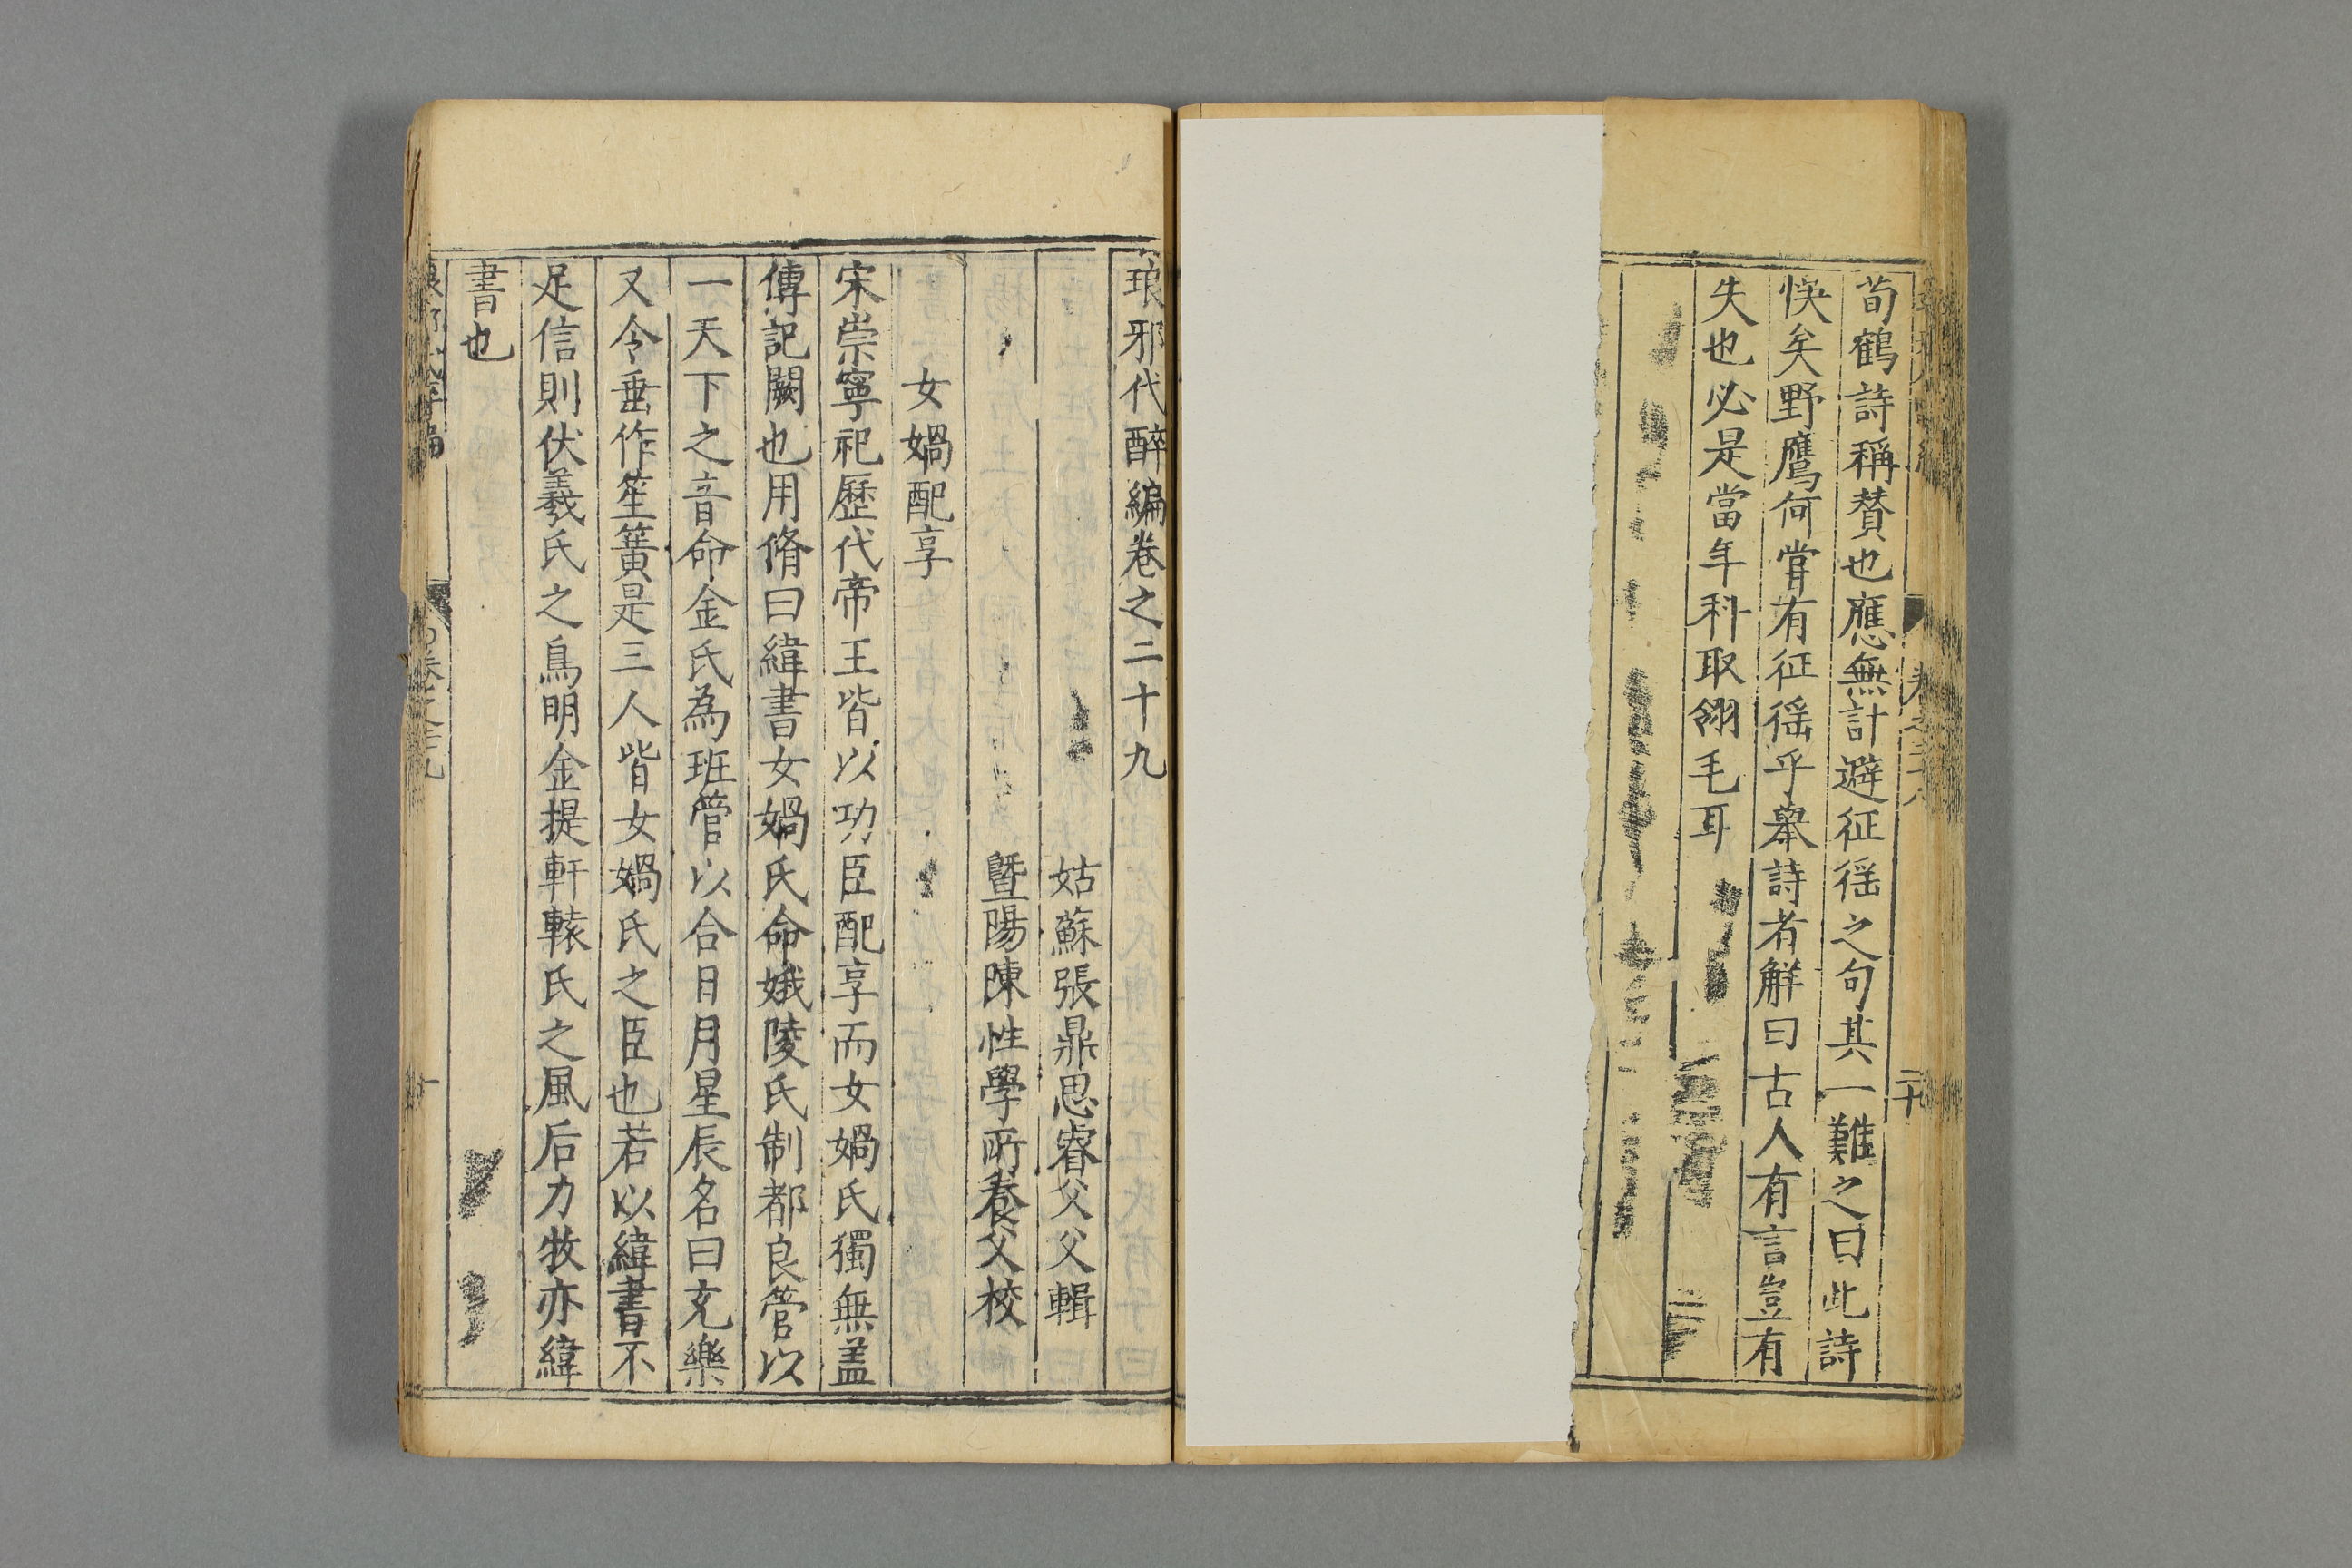 荀鶴詩稱賛也應無計避征徭之句其一難之曰此詩
悞矣野鷹何甞有征徭乎舉詩者解曰古人有言豈有
失也必是當年科取翎毛耳
琅邪代醉編卷之二十九
姑蘇張鼎思睿父父輯
曁陽陳性學所養父校
女媧配享
宋崇寧祀歷代帝王皆以功臣配享而女媧氏獨無盖
傳記闕也用脩曰緯書女媧氏命娥陵氏制都良管以
一天下之音命金氏為班管以合日月星辰名曰充樂
又令垂作笙簧是三人皆女媧氏之臣也若以緯書不
足信則伏羲氏之鳥明金提軒轅氏之風后力牧亦緯
書也